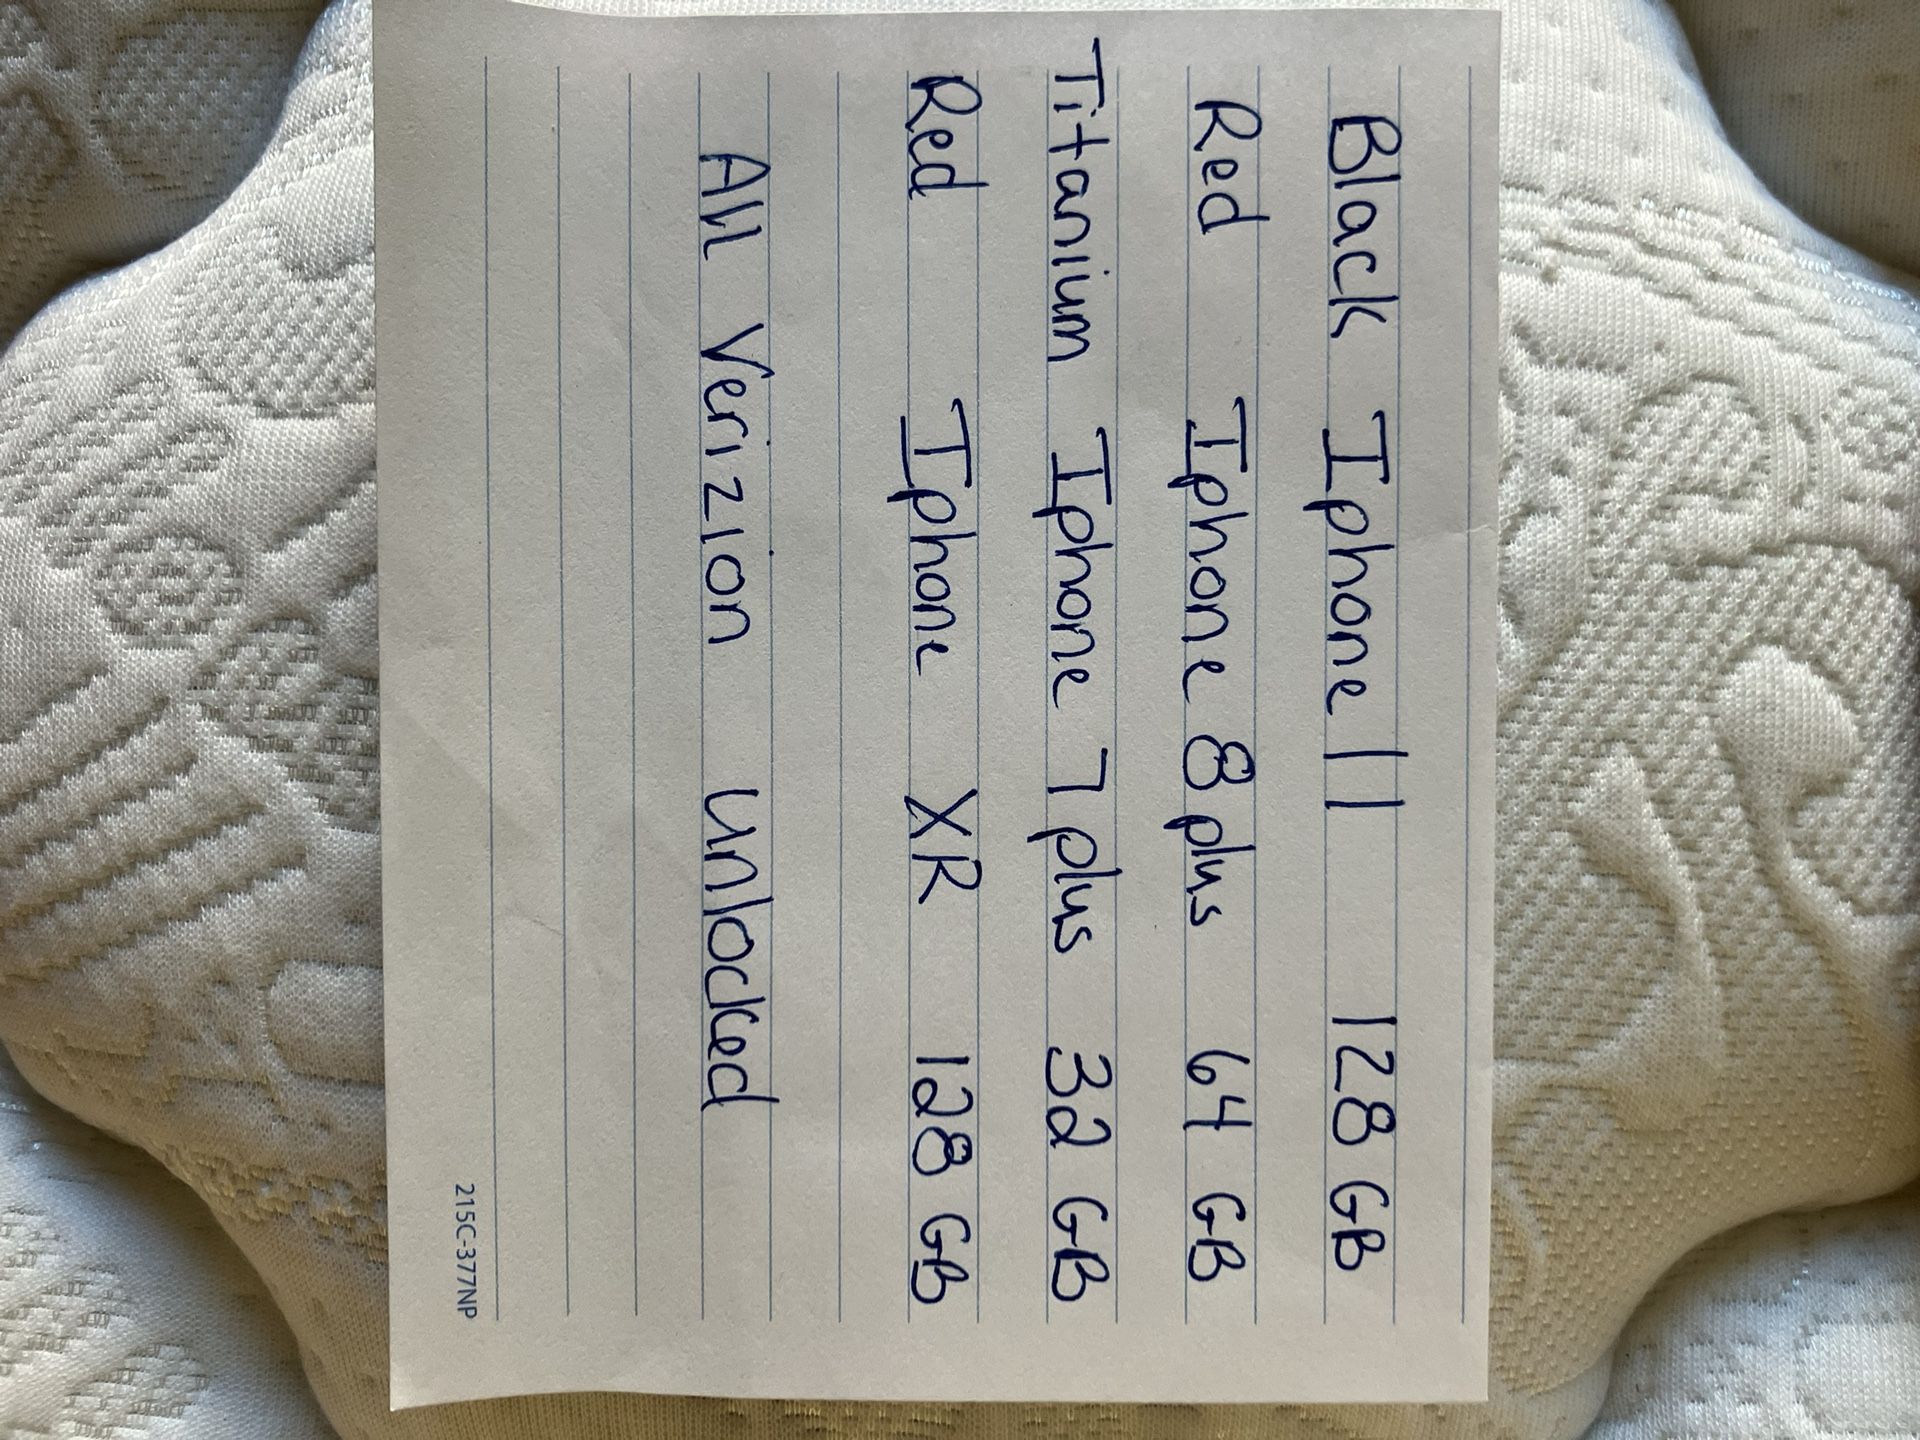 Black Iphone 11 128 GB
Red Iphone 8 plus 64 GB
Titanium Iphone 7 plus 32 GB
Red Iphone XR 128 GB
All Verizion unlocked
215C-377NP